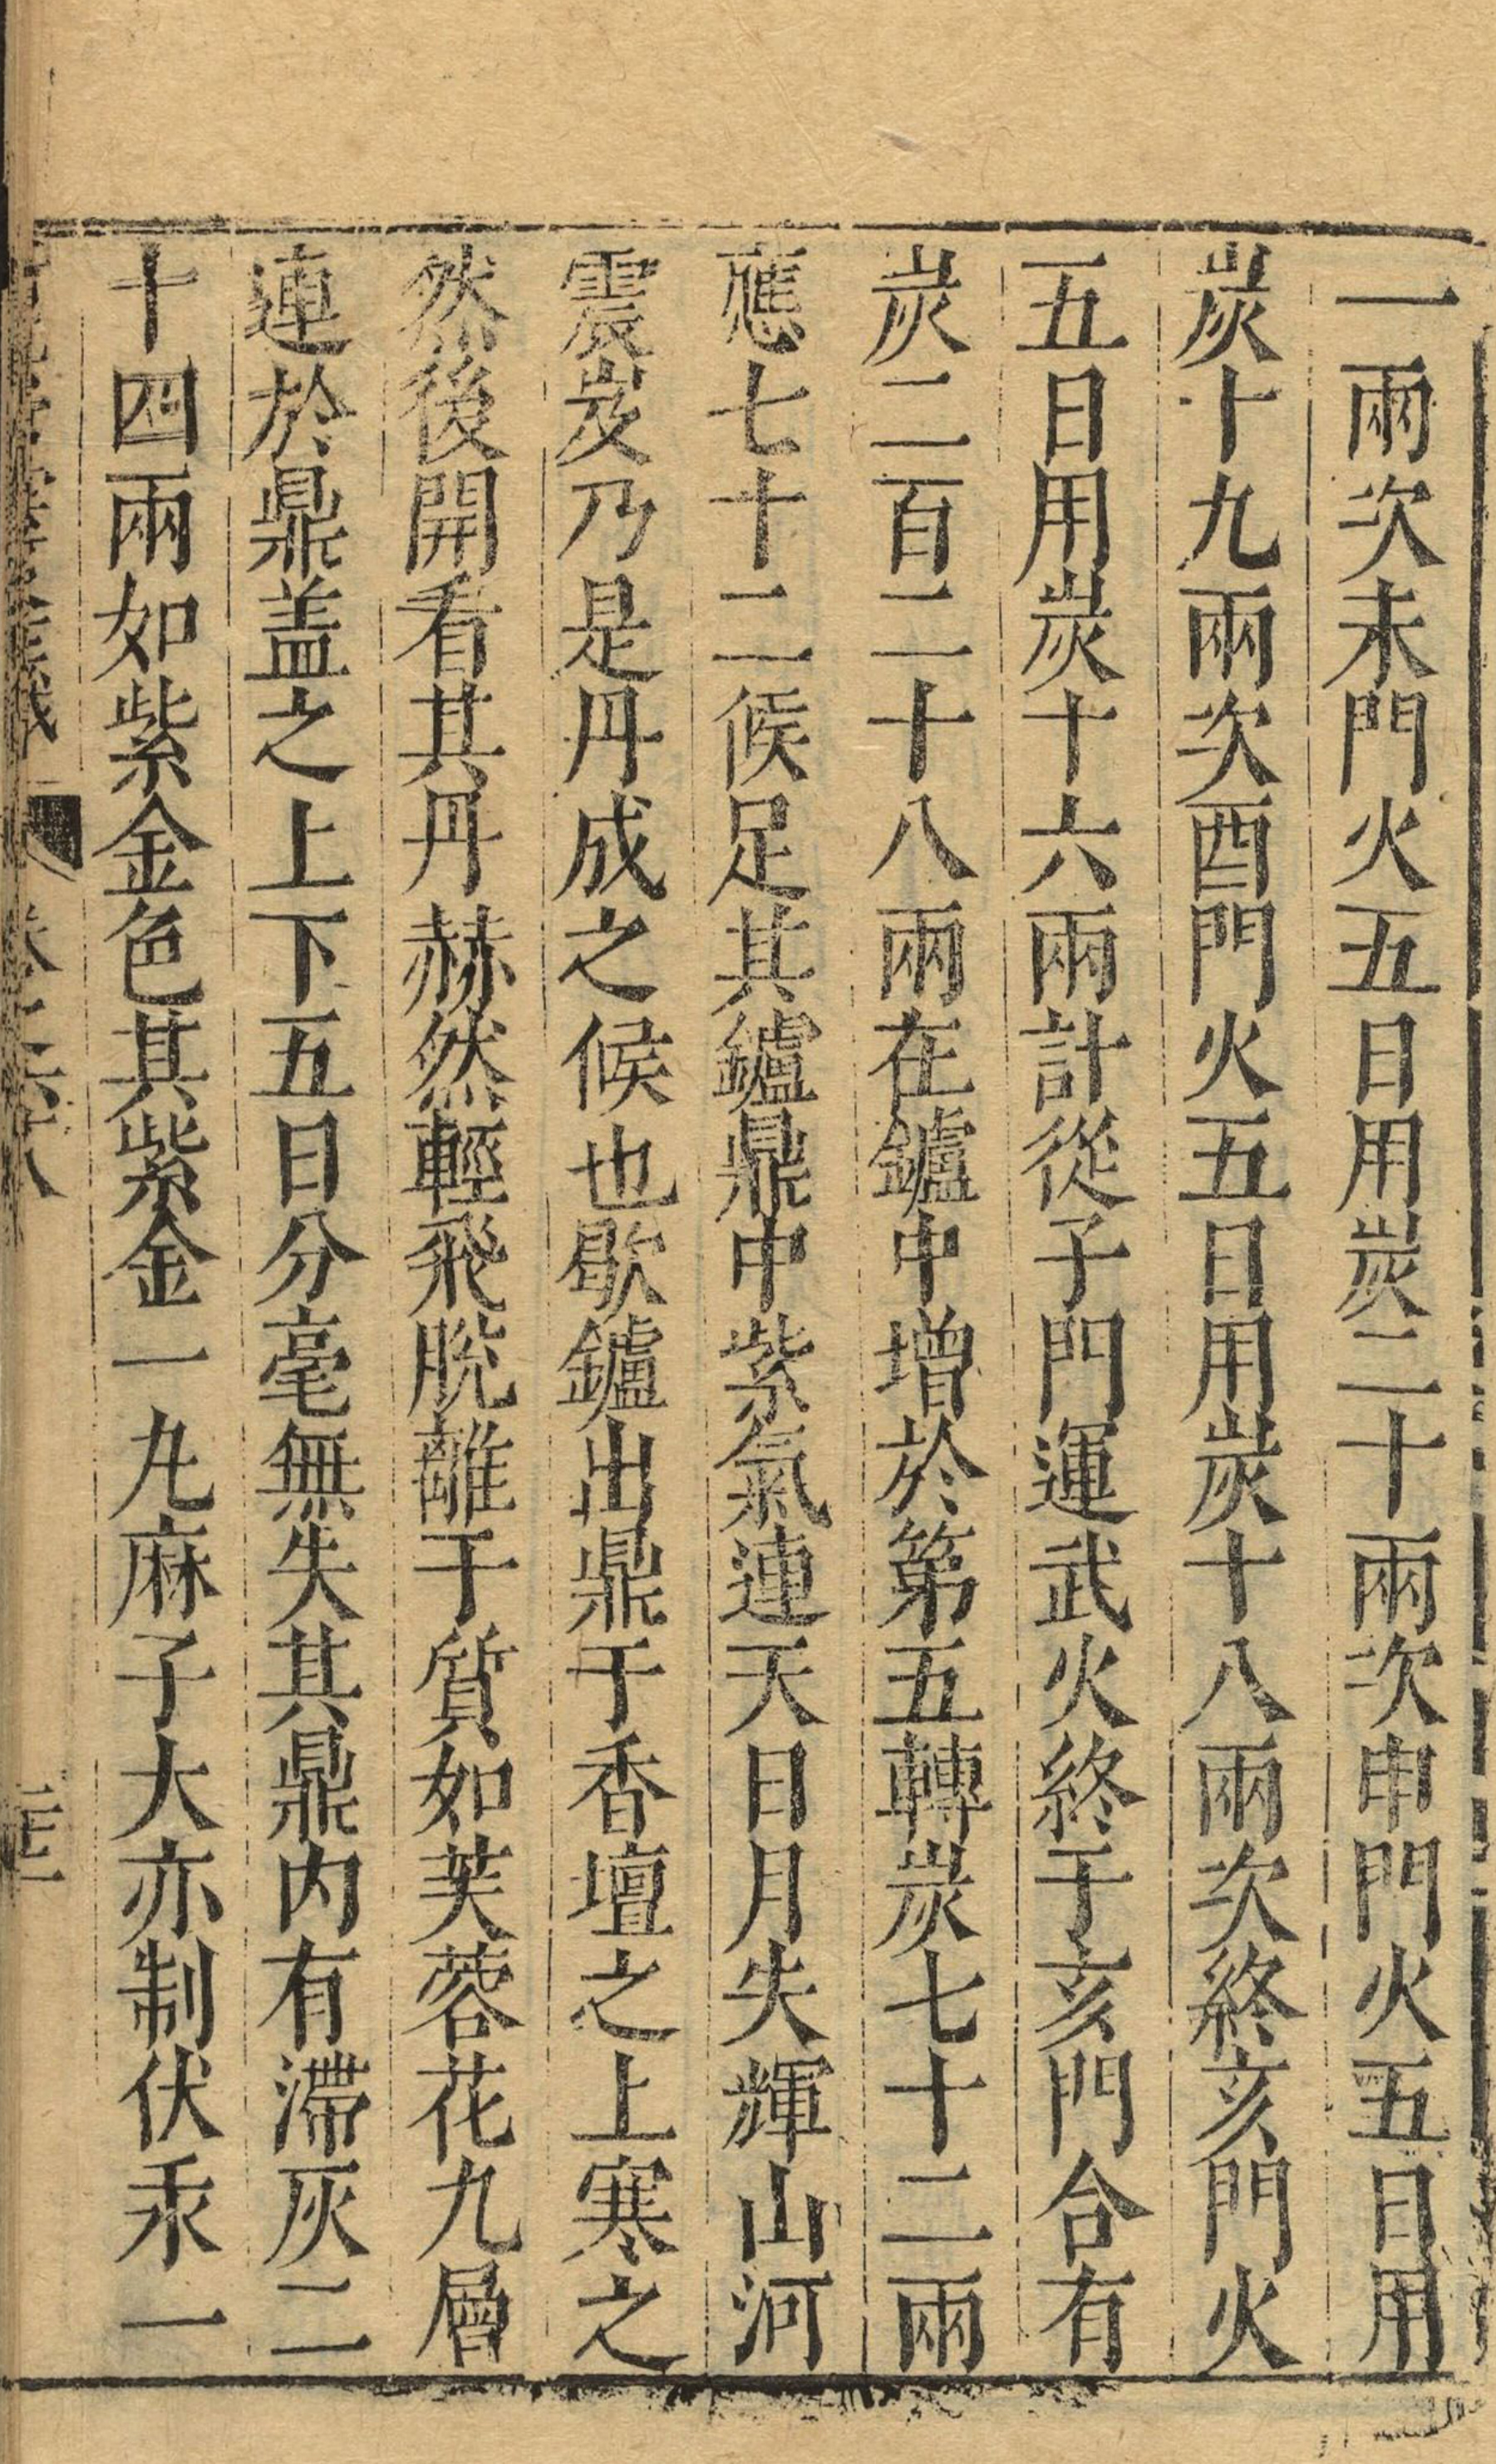 一兩次未門火五日用炭二十兩次申門火五日用
炭十九兩次酉門火五日用炭十八兩次終亥門火
五日用炭十六兩計從子門運武火終于亥門合有
炭二百二十八兩在鑪中增於第五轉炭七十二兩
應七十二候足其鑪鼎中紫氣連天日月失輝山河
震岌乃是丹成之候也歇鑪出鼎于香壇之上寒之
然後開看其丹赫然輕飛脫離于質如芙蓉花九層
連於鼎盖之上下五日分毫無失其鼎内有滯灰二
十四兩如紫金色其紫金一丸麻子大亦制伏汞一